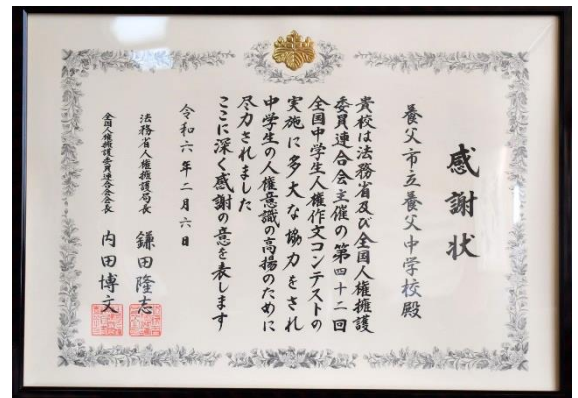 感謝状
養父市立養父中学校殿
貴校は法務省及び全国人権擁護
委員連合会主催の第四十二回
全国中学生人権作文コンテストの
実施に多大な協力をされ
中学生の人権意識の高揚のために
尽力されました
ここに深く感謝の意を表します
令和六年二月六日
法務省人権擁護局長 鎌田隆志
全国人権擁護委員連合会会長 内田博文